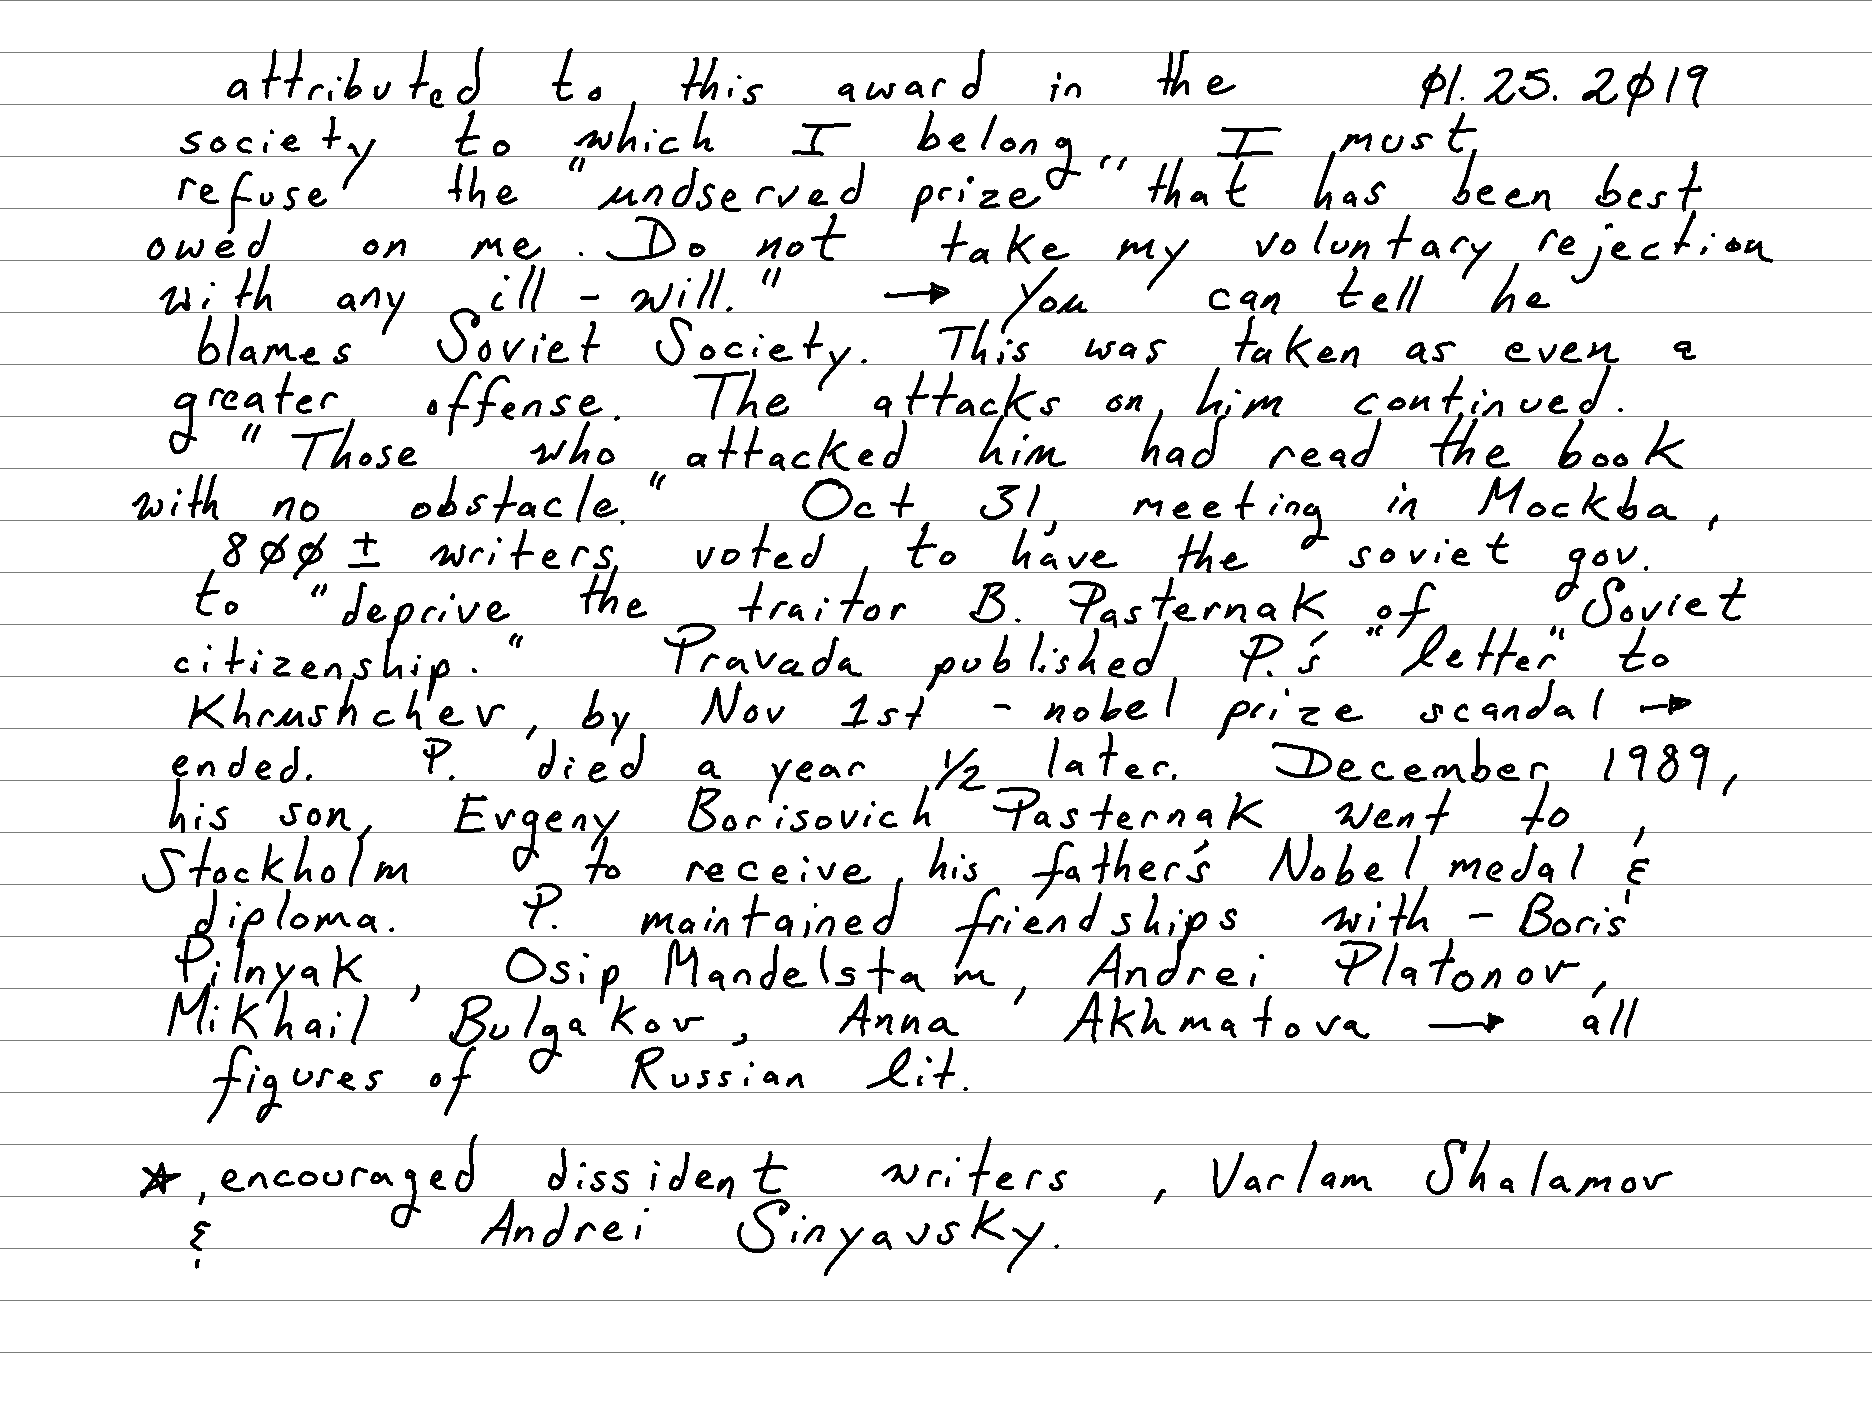 attributed to this award in the Ø1. 25. 2Ø19
society to which I belong, I must
refuse the "undserved prize" that has been best
owed on me. Do not take my voluntary rejection
with any ill - will." → You can tell he
blames Soviet Society. This was taken as even a
greater offense. The attacks on him continued.
"Those who attacked him had read the book
with no obstacle." Oct 31, meeting in Mockba,
8ØØ ± writers voted to have the soviet gov.
to "deprive the traitor B. Pasternak of Soviet
citizenship." Pravada published P.'s "letter" to
Khrushchev, by Nov 1st - nobel prize scandal →
ended. P. died a year 1/2 later. December 1989,
his son, Evgeny Borisovich Pasternak went to
Stockholm to receive his father's Nobel medal &
diploma. P. maintained friendships with - Boris
Pilnyak, Osip Mandelstam, Andrei Platonov,
Mikhail Bulgakov, Anna Akhmatova → all
figures of Russian lit.
☆, encouraged dissident writers, Varlam Shalamov
& Andrei Sinyavsky.